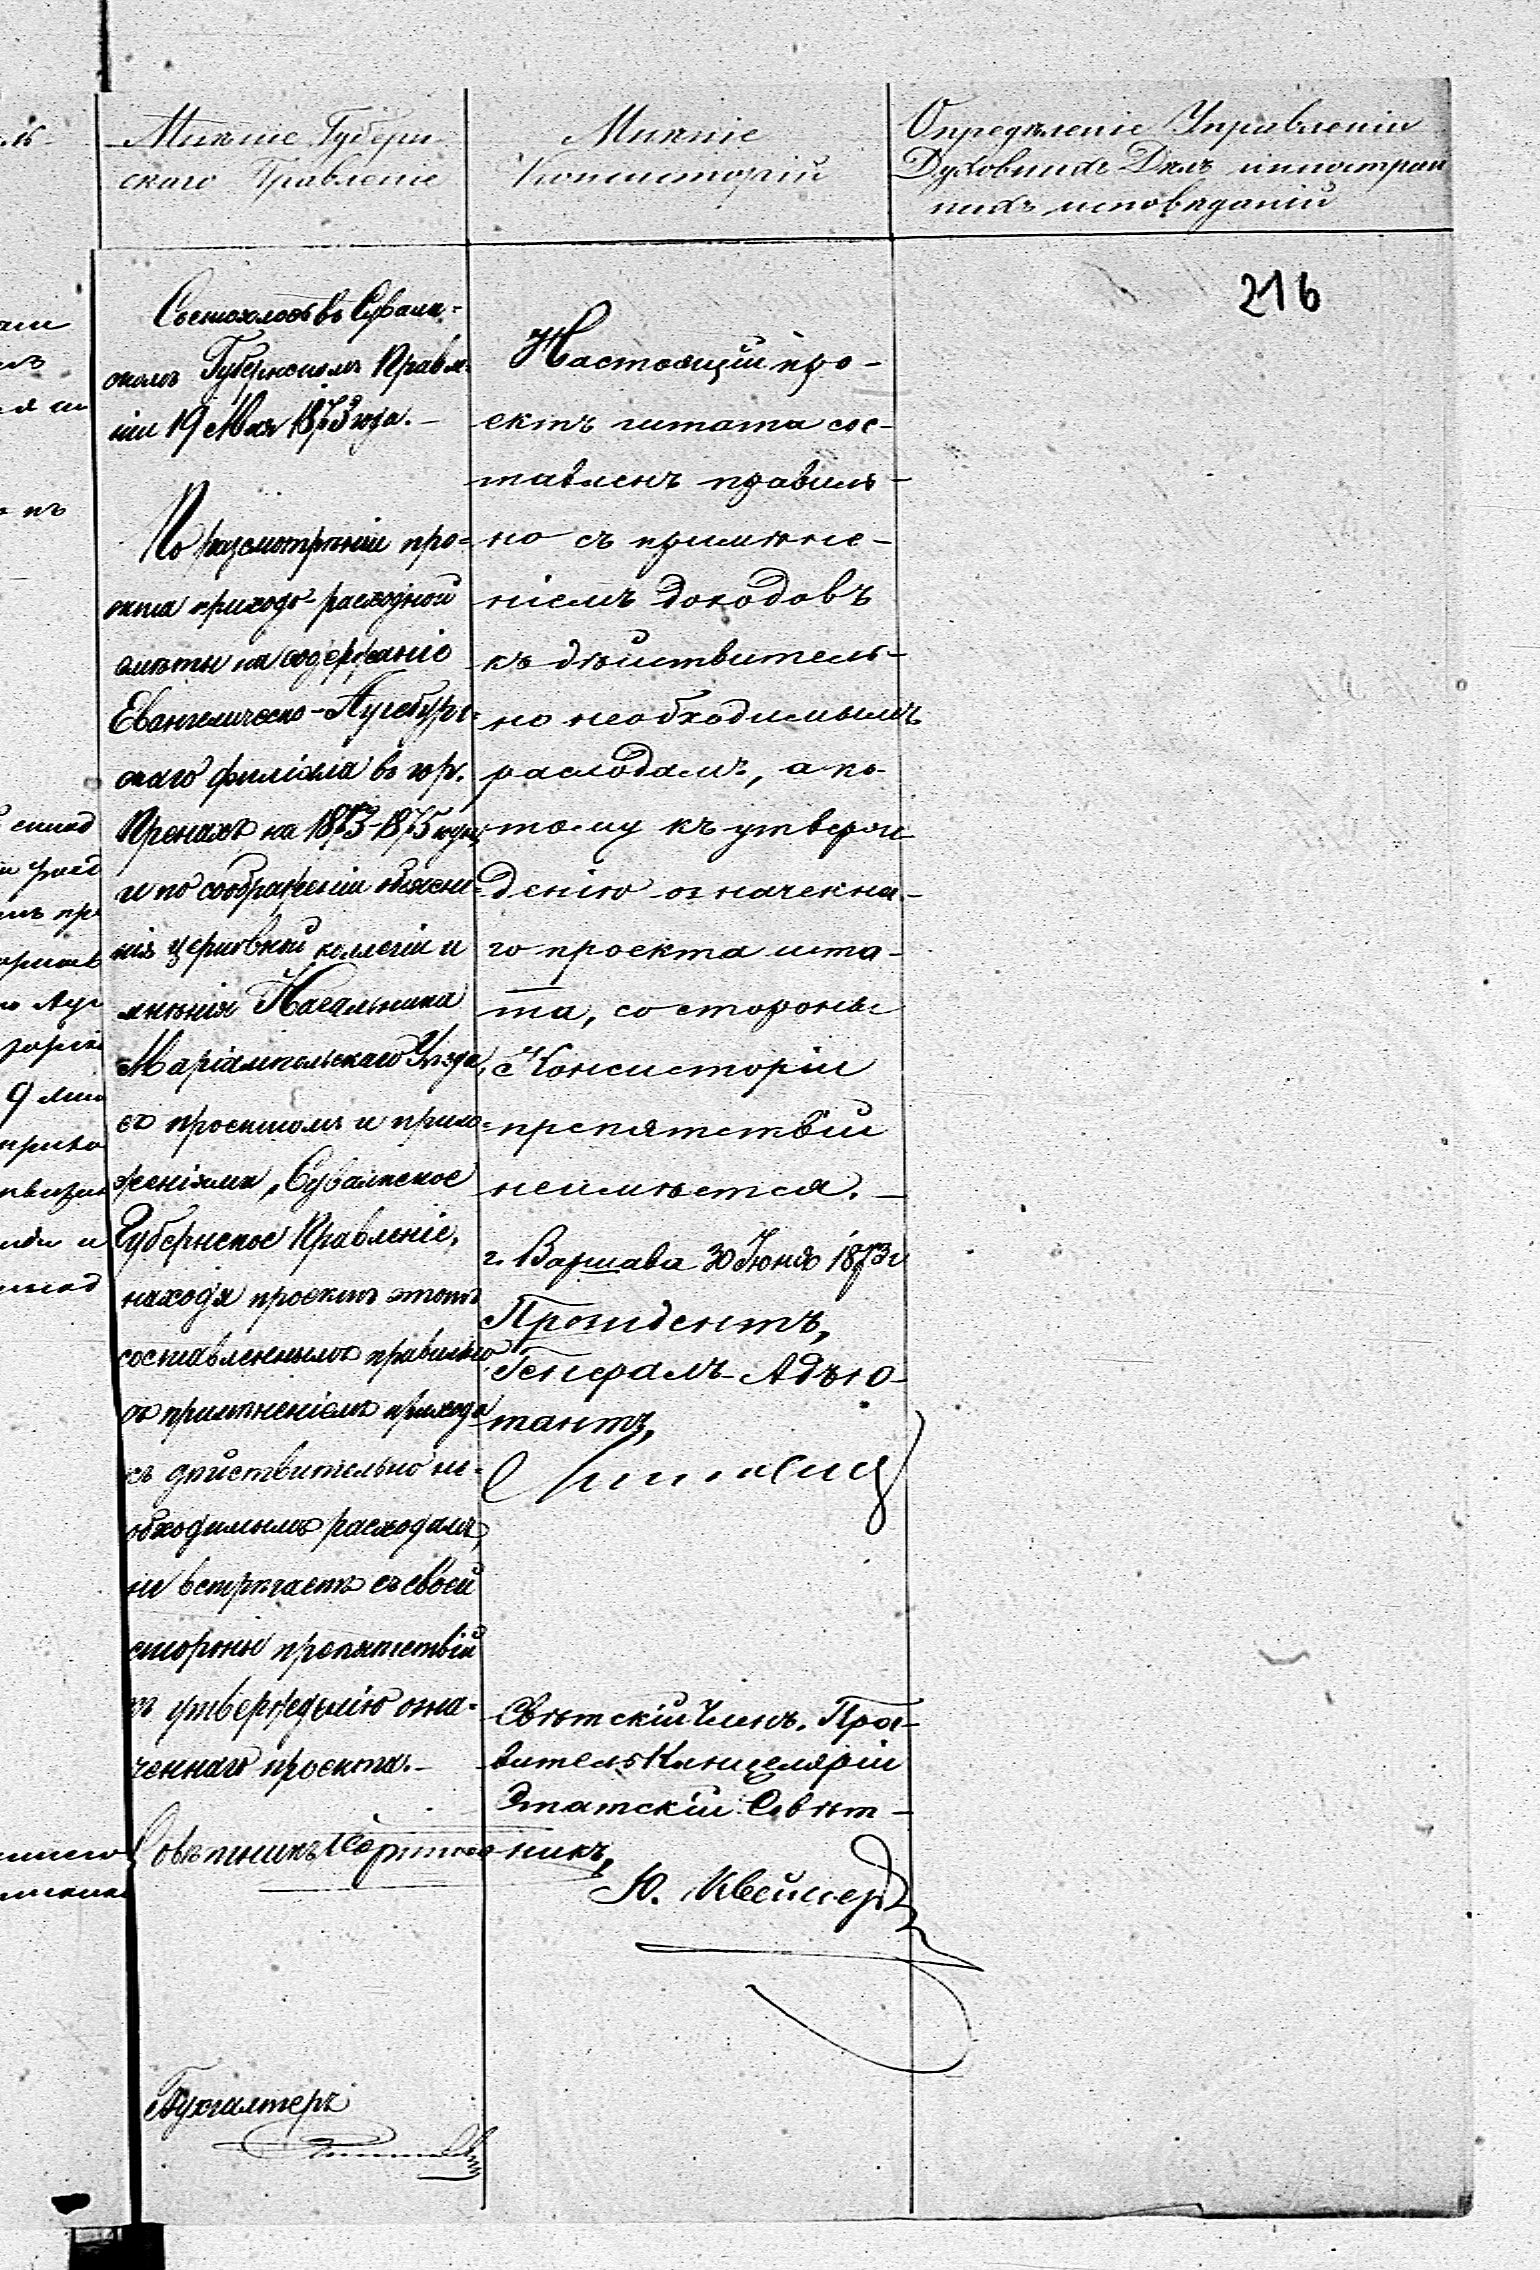 Мнѣніе Губерн
скаго Правленіе
Мнѣніе
Консисторіи
Опредѣленіе Управленія
Духовныхъ Дѣлъ иностран
ныхъ исповѣданій
216
Состоялось въ Сувалк-
скомъ Губернскомъ Правле-
ніи 19 Мая 1873 года.-
По разсмотрѣніи про-
екта приходо-расходной
смѣты на содержаніе
Евангелическо-Аугсбург-
скаго филіала въ гор.
Пренахъ на 1873-1875 годы,
и по соображеніи объясне-
нія церковной коллегіи и
мнѣнія Начальника
Маріампольскаго Уѣзда,
съ проектомъ и прило-
женіями, Сувалкское
Губернское Правленіе,
находя проектъ этотъ
составленнымъ правильно
съ примѣненіемъ прихода
къ дѣйствительно не-
обходимымъ расходамъ,
не встрѣчаетъ съ своей
стороны препятствій
къ утвержденію озна-
ченнаго проекта.-
Совѣтникъ
Бухгалтеръ
Настоящій про-
ектъ штата сос-
тавленъ правиль-
но съ примѣне-
ніемъ доходовъ
къ дѣйствитель-
но необходимымъ
расходамъ, а по-
тому къ утверж
денію означенна-
го проекта шта-
та, со стороны
Консисторіи
препятствій
неимѣется.-
г. Варшава 30 Іюня 1873 г
Президентъ,
Генералъ-Адъю-
тантъ,
Свѣтскій Членъ, Пра-
витель Канцеляріи
Статскій Совѣт-
никъ,
Ю.